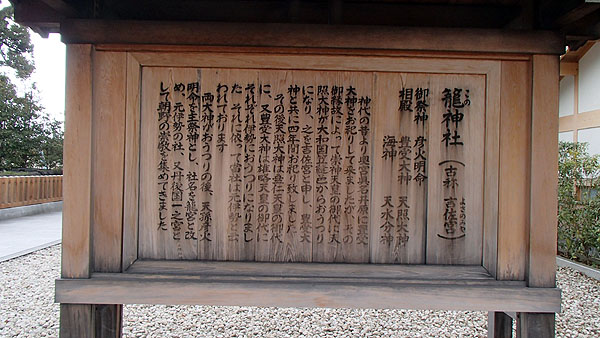 籠神社(古称 吉佐宮)
この
よさのみや
御祭神 彦火明命
相殿 豊受大神 天照大神
海神 天水分神
神代の昔より奥宮眞名井原に豊受
大神をお祀りして来ましたが その
御縁故によって崇神天皇の御代に天
照大神が大和国笠縫邑からおうつり
になり 之を吉佐宮と申し 豊受大
神と共に四年間お祀り致しました
その後天照大神は垂仁天皇の御代
に 又豊受大神は雄略天皇の御代に
それぞれ伊勢におうつりになりまし
た それに依って当社は元伊勢と云
われております
両大神がおうつりの後、天孫彦火
明命を主祭神とし、社名を籠宮と改
め、元伊勢の社、又丹後国一之宮と
して朝野の崇敬を集めてきました